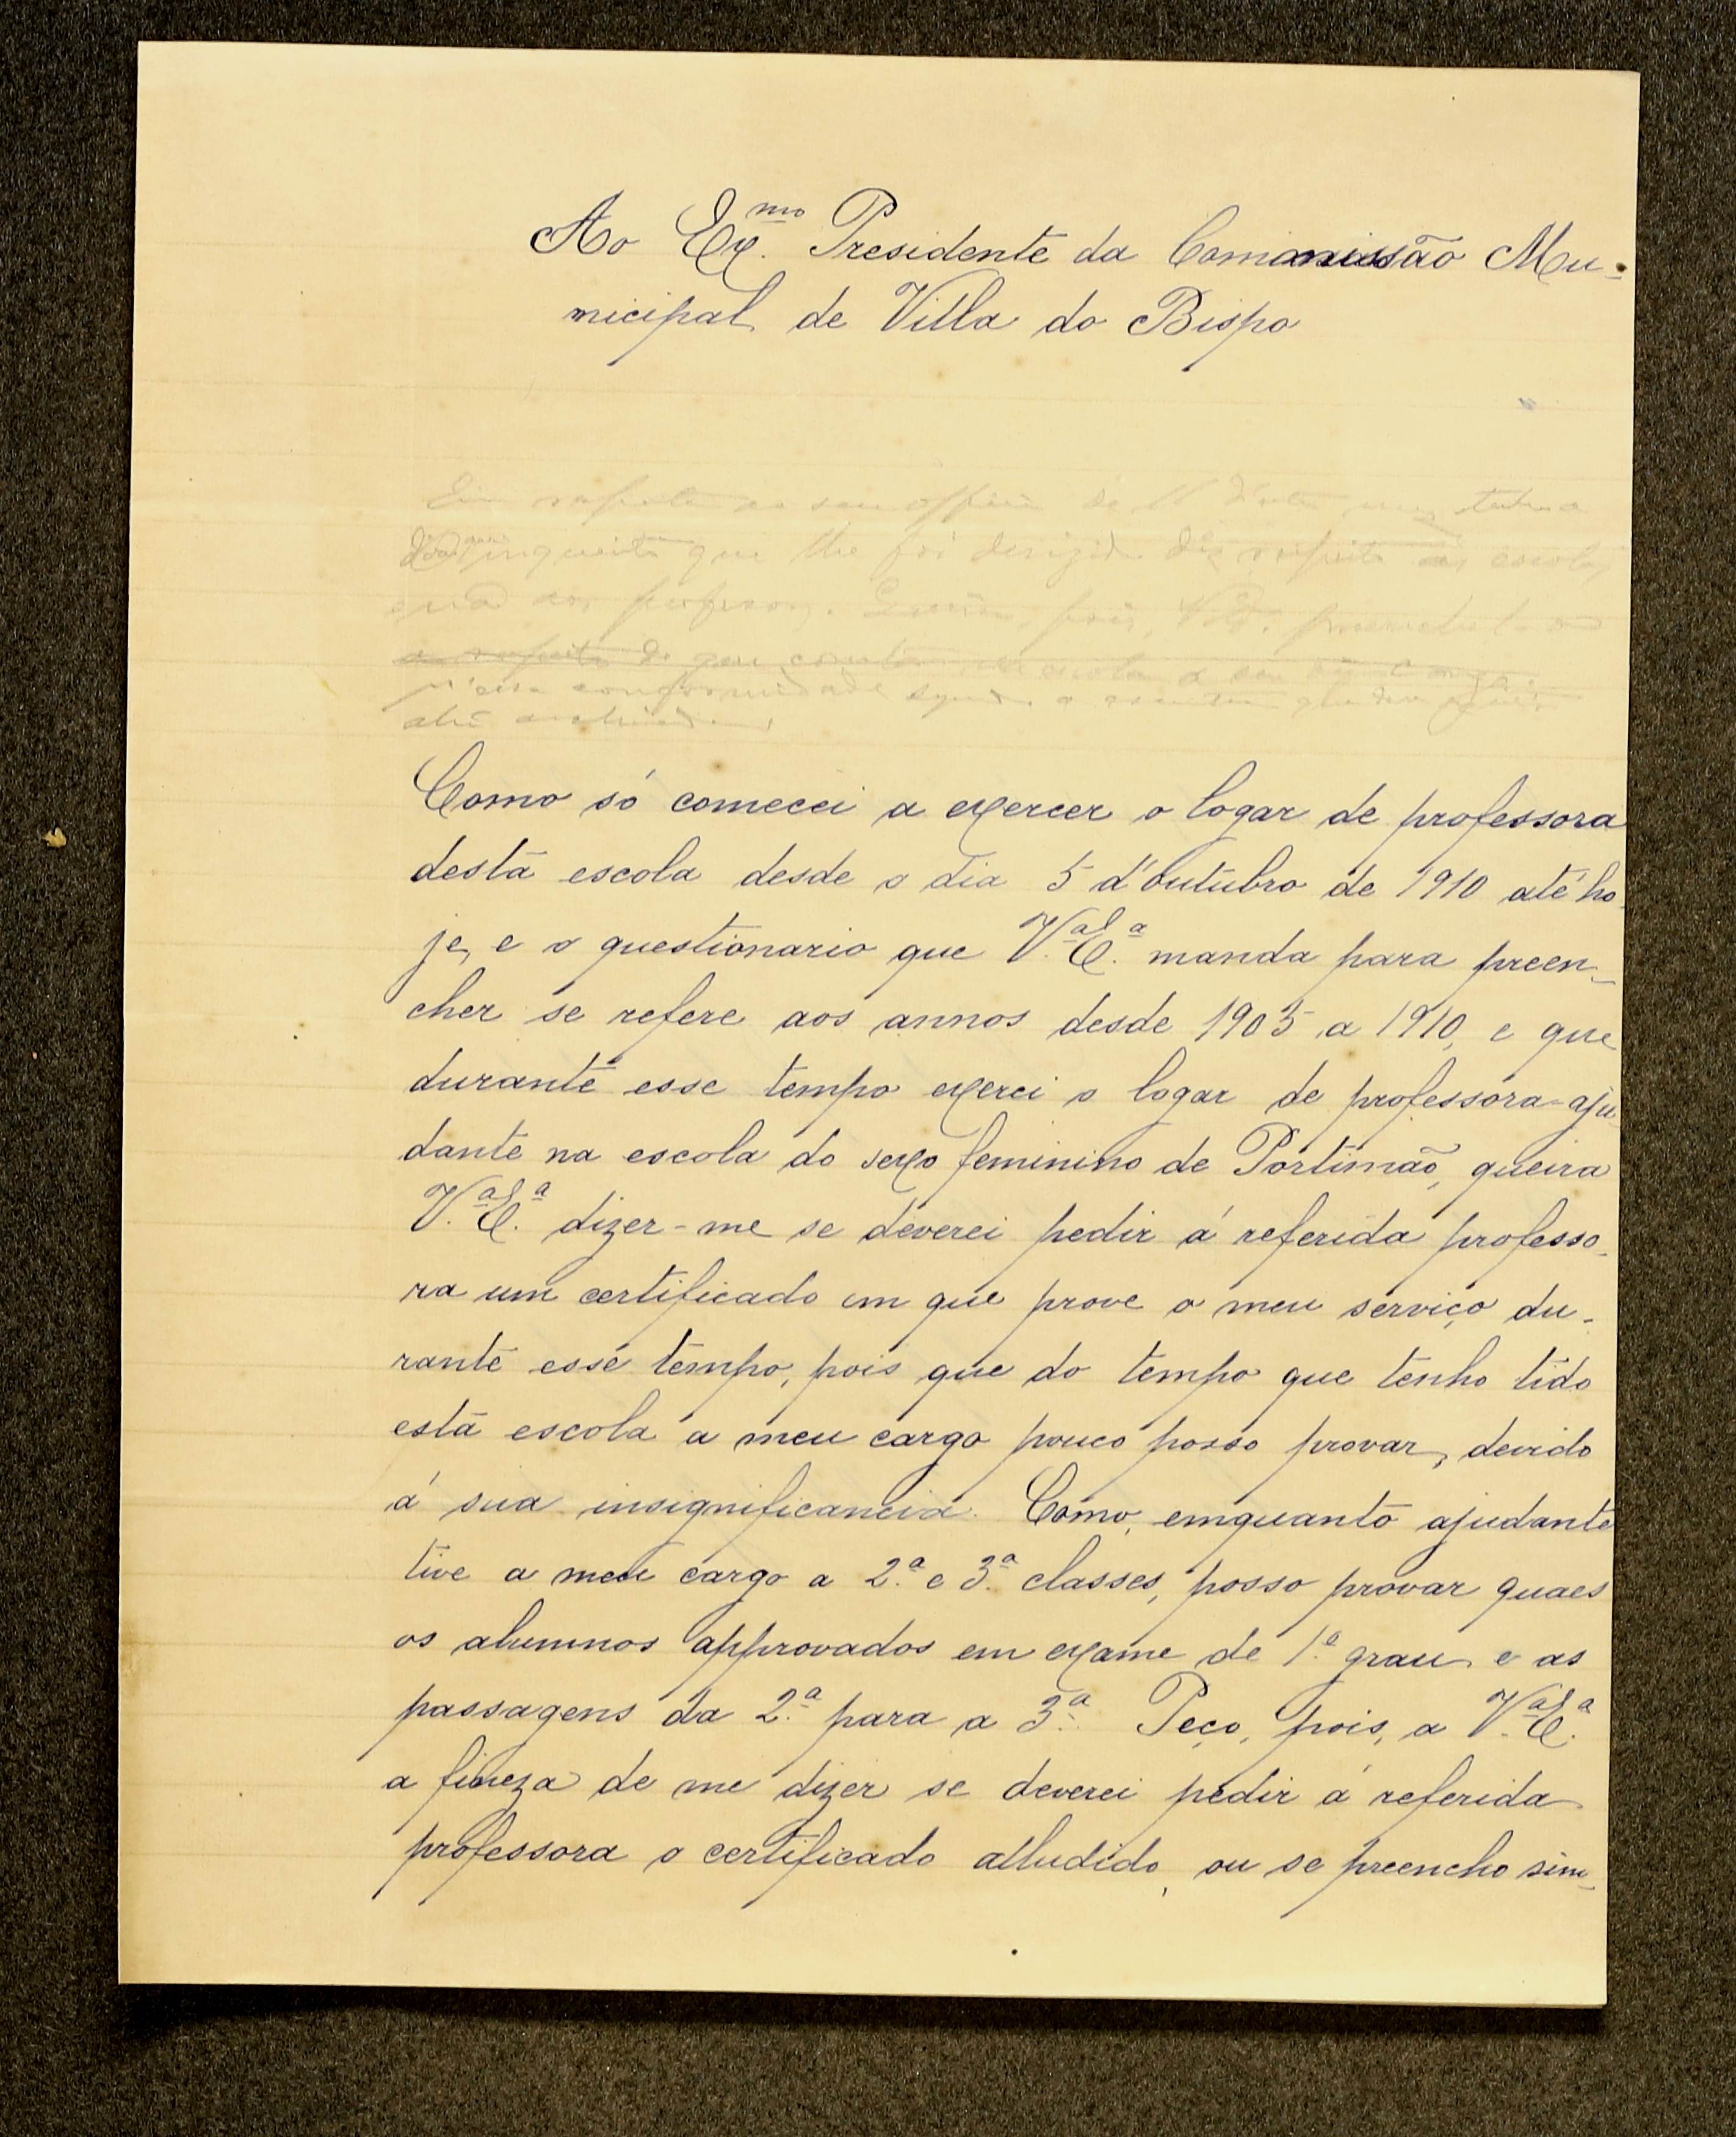 Ao Ex.mo Presidente da Commissão Mu-
nicipal de Villa do Bispo
seu officio de
inquerito que lhe foi dirigido diz respeito ás escolas
e não aos professores. pois,
n'essa conformidade
Como só comecei a exercer o logar de professora
desta escola desde o dia 5 d'outubro de 1910 até ho-
je, e o questionario que V.ª Ex.ª manda para preen-
cher se refere aos annos desde 1905 a 1910, e que
durante esse tempo exerci o logar de professora-aju-
dante na escola do sexo feminino de Portimão, queira
V.ª Ex.ª dizer-me se deverei pedir á referida professo-
ra um certificado em que prove o meu serviço du-
rante esse tempo, pois que do tempo que tenho tido
esta escola a meu cargo pouco posso provar, devido
á sua insignificancia. Como, emquanto ajudante
tive a meu cargo a 2.ª e 3.ª classes, posso provar quaes
os alumnos approvados em exame de 1.º grau e as
passagens da 2.ª para a 3.ª Peço, pois, a V.ª Ex.ª
a fineza de me dizer se deverei pedir á referida
professora o certificado alludido, ou se preencho sim-